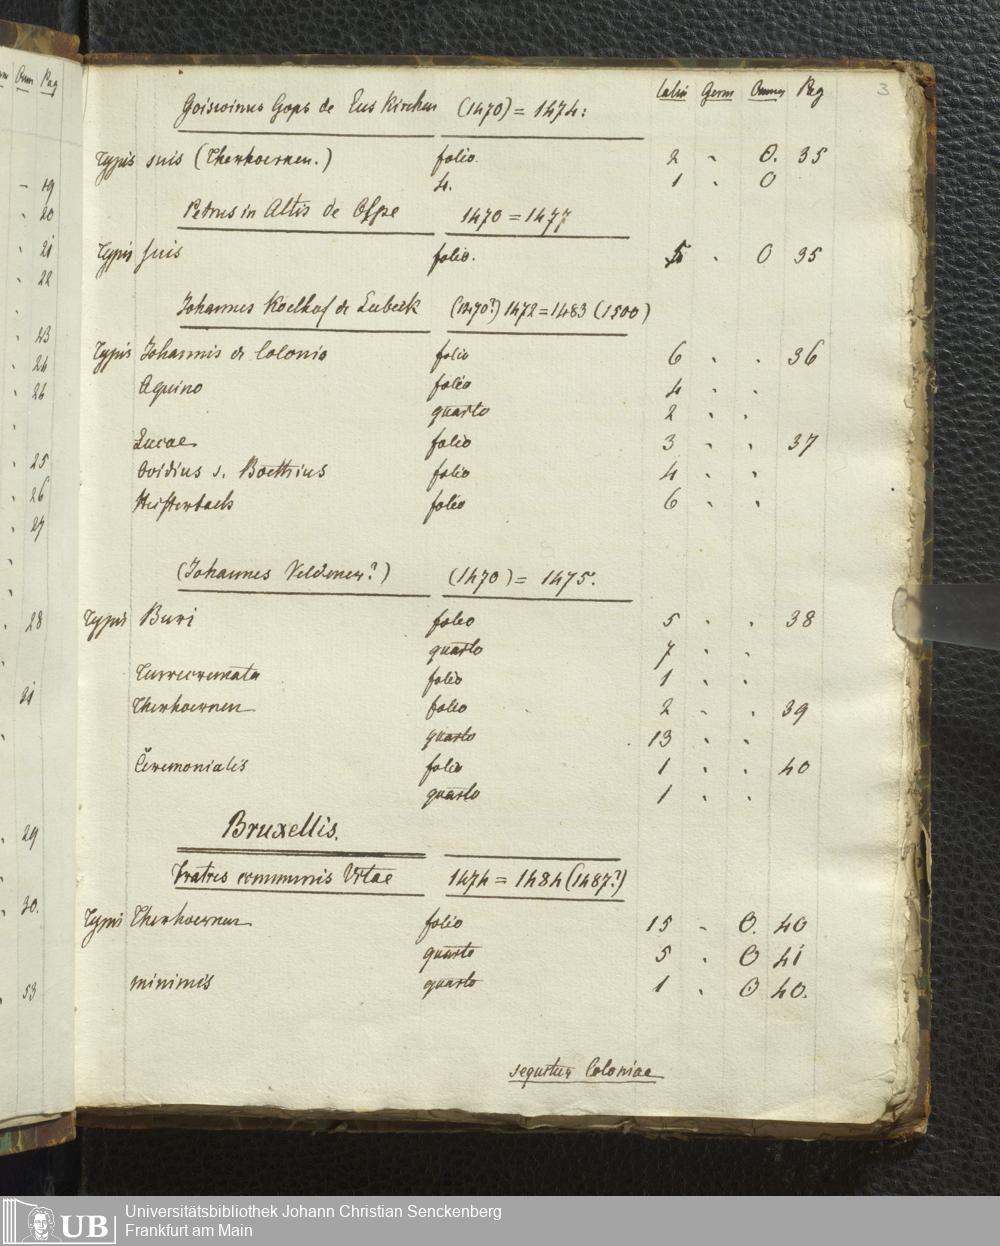 Latin Germ Omnes Pag 3
Goiswinus Gops de Eus Kirchen (1470) = 1474:
Typis suis (Therhoernen.) folio. 2 " O. 35
4. 1 " O
Petrus in Altis de Olpe 1470 = 1477
Typis suis folio. 5 " O 35
Johannes Koelhof de Lubeck (1470?) 1472 = 1483 (1500)
Typis Johannis de Colonia folio 6 " " 36
Aquino folio 4 " "
quarto 2 " "
Lucae folio 3 " " 37
Ovidius s. Boethius folio 4 " "
Heisterbach folio 6 " "
(Johannes Veldener?) (1470) = 1475.
Typis Buri folio 5 " " 38
quarto 7 " "
Turrecremata folio 1 " "
Therhoernen folio 2 " " 39
quarto 13 " "
Ceremonialis folio 1 " " 40
quarto 1 " "
Bruxellis.
Fratres communis Vitae 1474 = 1484 (1487?)
Typis Therhoernen folio 15 " O. 40
quarto 5 " O 41
minimis quarto 1 " O 40.
sequitur Coloniae
Omn Pag
19
20
21
22
23
24
26
25
26
27
28
21
29
30.
53
UB
Universitätsbibliothek Johann Christian Senckenberg
Frankfurt am Main